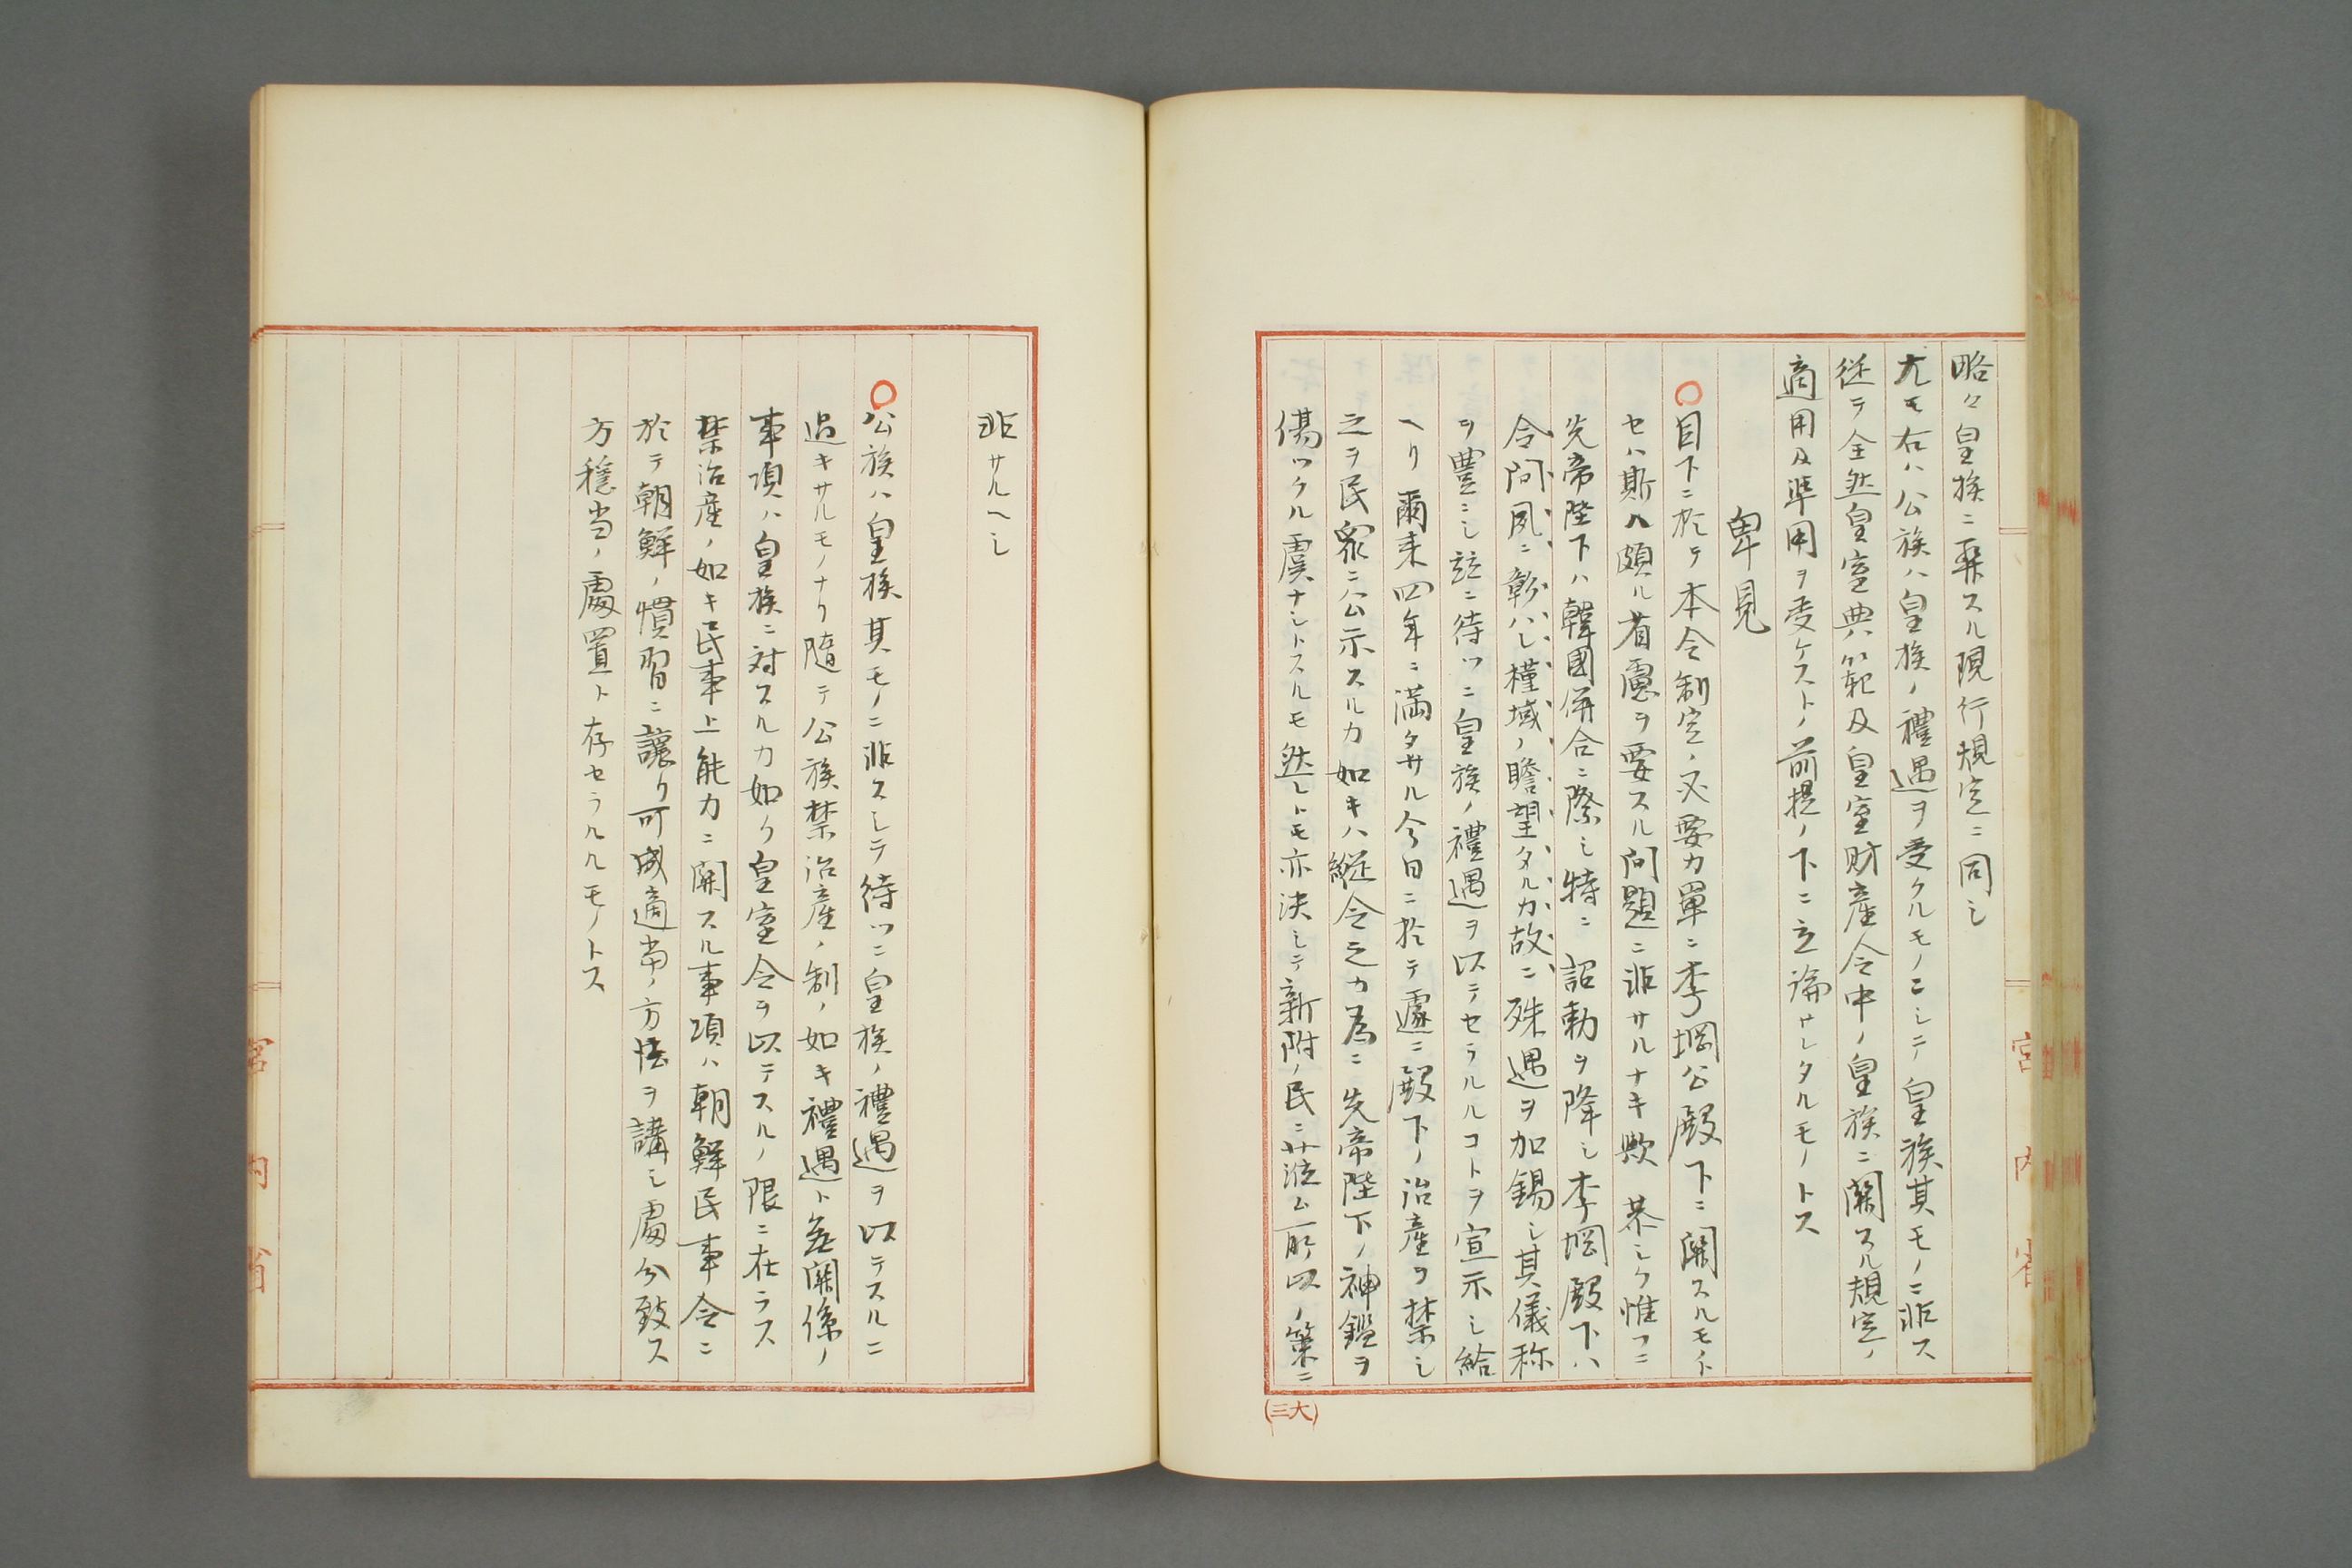 略々皇族ニ關スル現行規定ニ同シ
尤モ右ハ公族ハ皇族ノ禮遇ヲ受クルモノニシテ皇族其モノニ非ス
従テ全然皇室典範及皇室財産令中ノ皇族ニ關スル規定ノ
適用及準用ヲ受ケストノ前提ノ下ニ立論サレタルモノトス
卑見
○目下ニ於テ本令制定ノ必要カ單ニ李堈公殿下ニ關スルモノト
セハ斯ハ頗ル省慮ヲ要スル問題ニ非サルナキ歟恭シク惟フニ
先帝陛下ハ韓國併合ニ際シ特ニ詔勅ヲ降シ李堈殿下ハ
令問夙ニ彰ハレ槿域ノ瞻望タルカ故ニ殊遇ヲ加錫シ其儀称
ヲ豊ニシ玆ニ待ツニ皇族ノ禮遇ヲ以テセラルルコトヲ宣示シ給
ヘリ爾来四年ニ満タサル今日ニ於テ遽ニ殿下ノ治産ヲ禁シ
之ヲ民衆ニ公示スルカ如キハ縦令之カ為ニ先帝陛下ノ神鑑ヲ
傷ツクル虞ナシトスルモ然レトモ亦決シテ新附ノ民ニ莅ム所以ノ策ニ
非サルヘシ
○公族ハ皇族其モノニ非スシテ待ツニ皇族ノ禮遇ヲ以テスルニ
過キサルモノナリ隨テ公族禁治産ノ制ノ如キ禮遇ト無關係ノ
事項ハ皇族ニ対スルカ如ク皇室令ヲ以テスルノ限ニ在ラス
禁治産ノ如キ民事上能力ニ關スル事項ハ朝鮮民事令ニ
於テ朝鮮ノ慣習ニ讓リ可成適當ノ方法ヲ講シ處分致ス
方穩当ノ處置ト存セラルルモノトス
宮内省
宮内省
(大三)